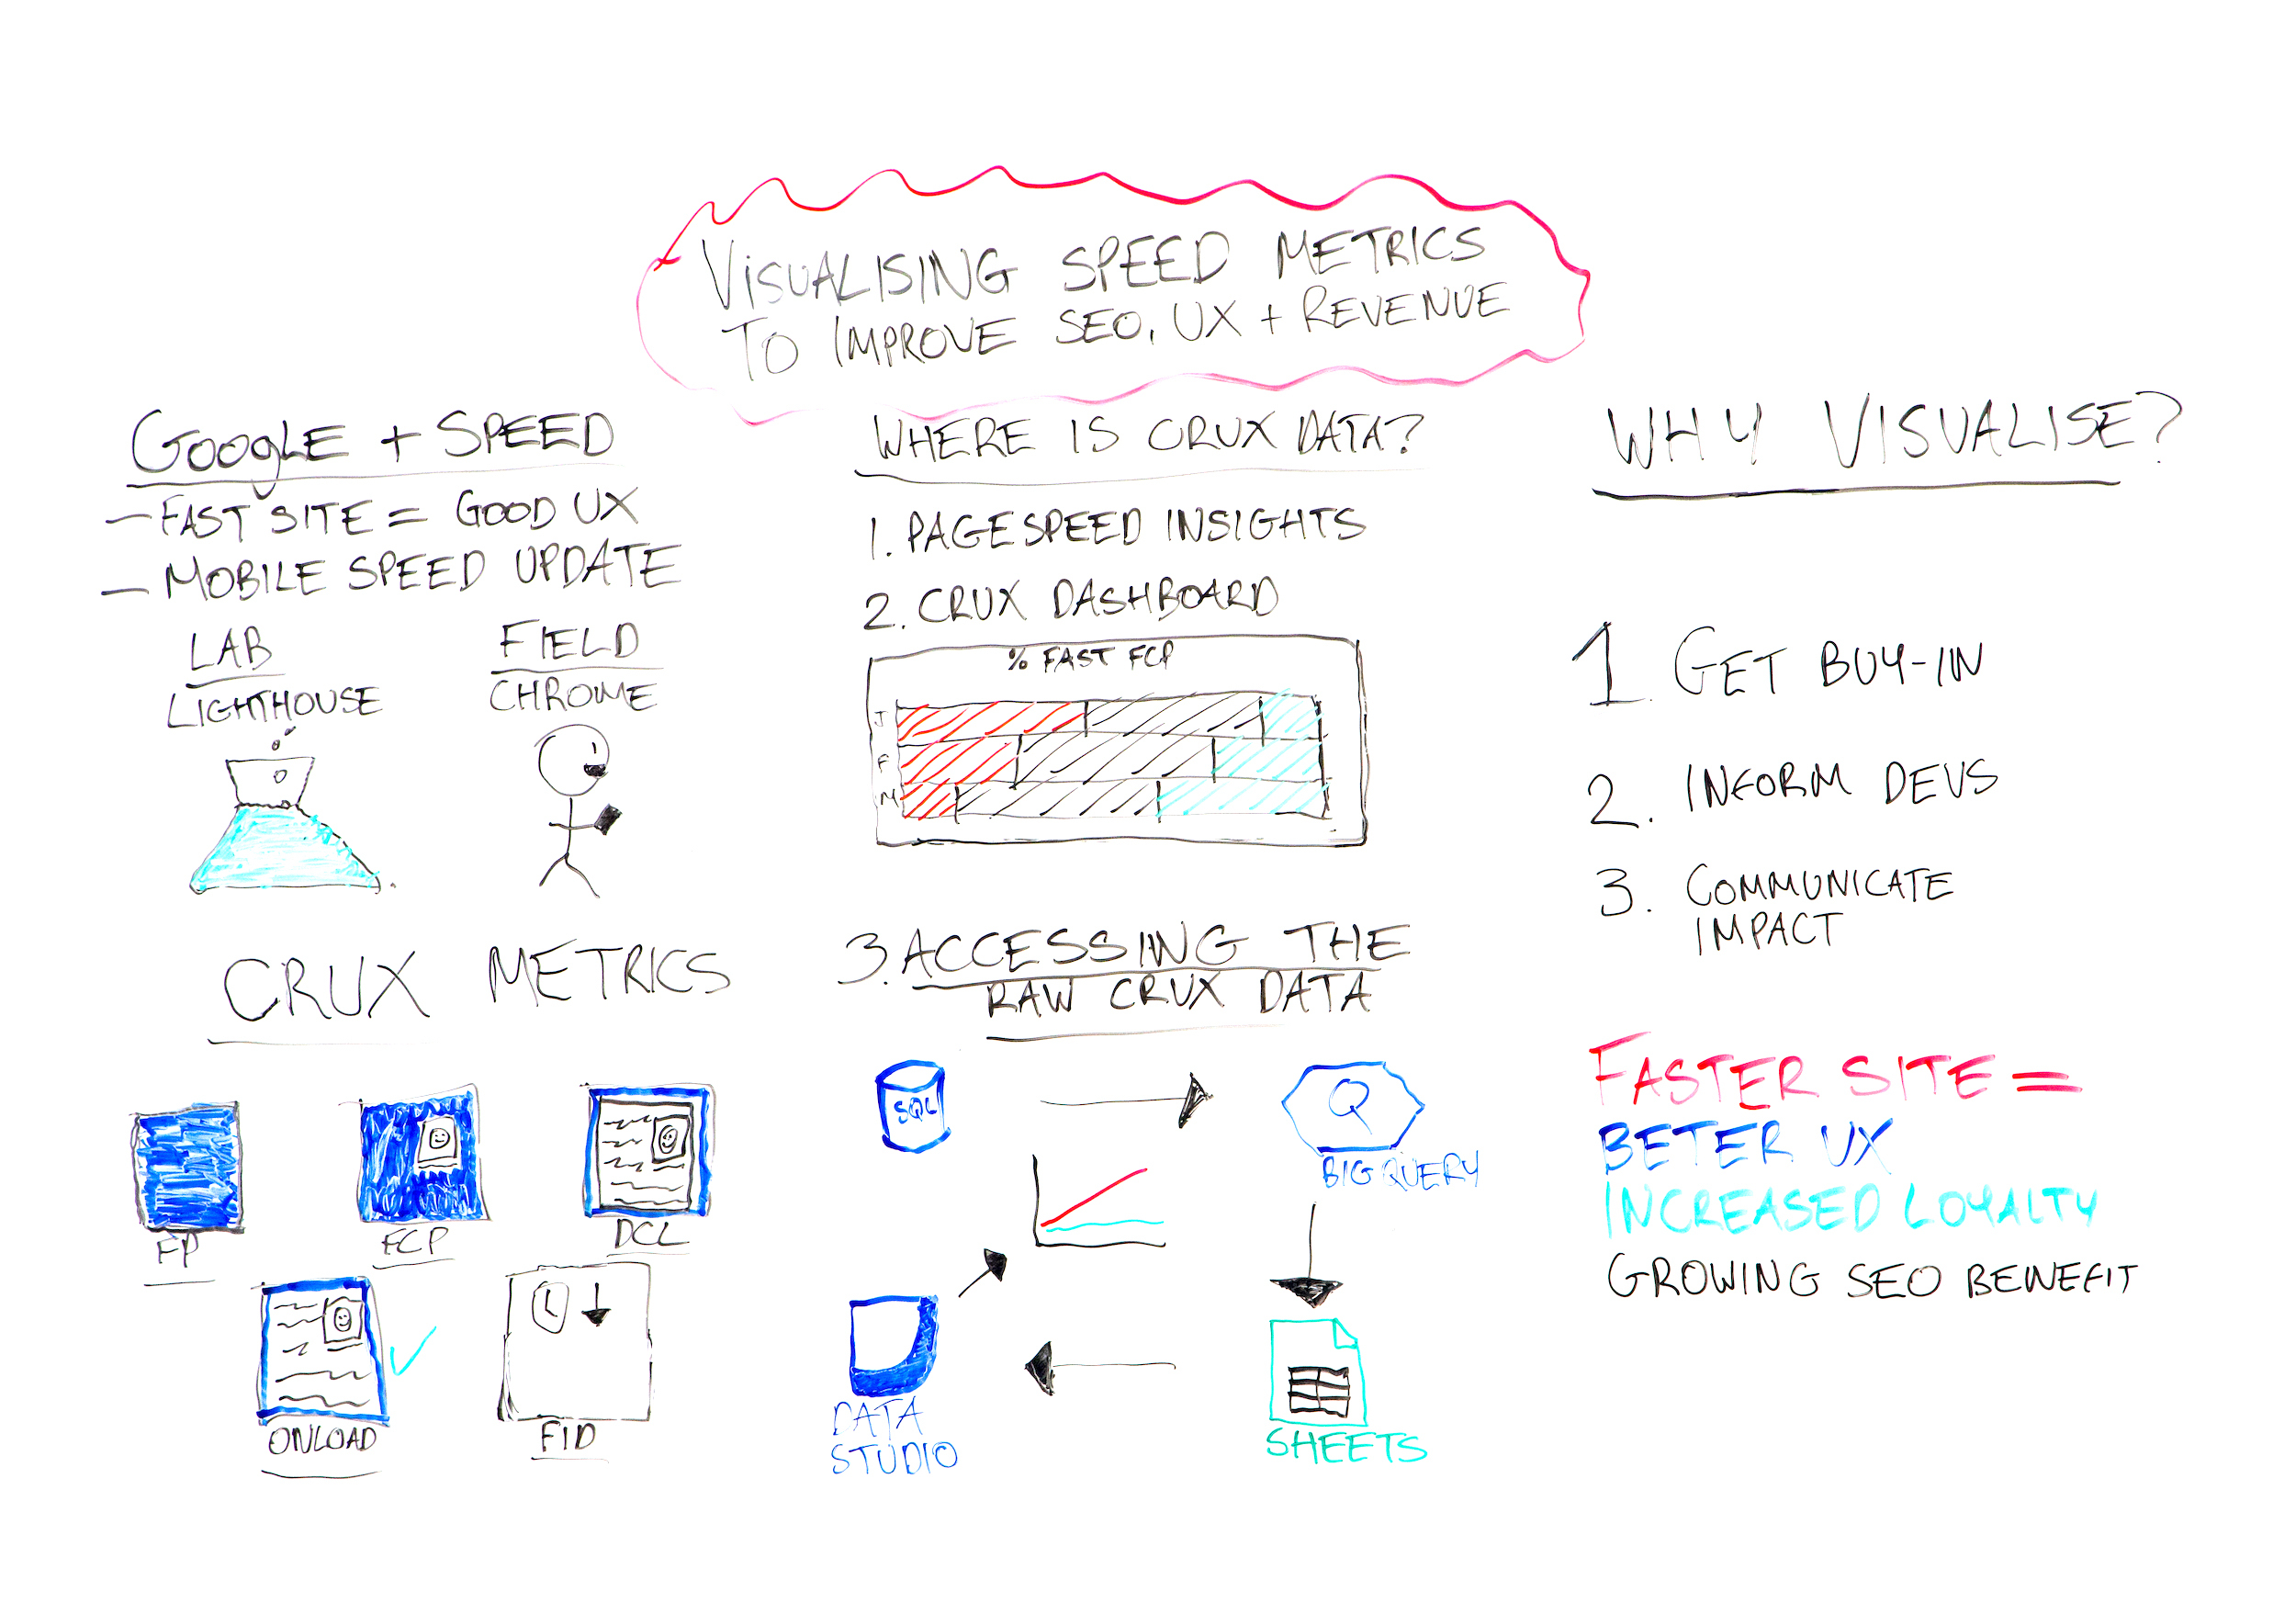 VISUALISING SPEED METRICS
TO IMPROVE SEO, UX + REVENUE
GOOGLE + SPEED
- FAST SITE = GOOD UX
- MOBILE SPEED UPDATE
LAB
LIGHTHOUSE
FIELD
CHROME
CRUX METRICS
FP
FCP
DCL
ONLOAD
FID
WHERE IS CRUX DATA?
1. PAGESPEED INSIGHTS
2. CRUX DASHBOARD
% FAST FCP
J
F
M
3. ACCESSING THE
RAW CRUX DATA
SQL
Q
BIG QUERY
SHEETS
DATA
STUDIO
WHY VISUALISE?
1. GET BUY-IN
2. INFORM DEVS
3. COMMUNICATE
IMPACT
FASTER SITE =
BETER UX
INCREASED LOYALTY
GROWING SEO BENEFIT